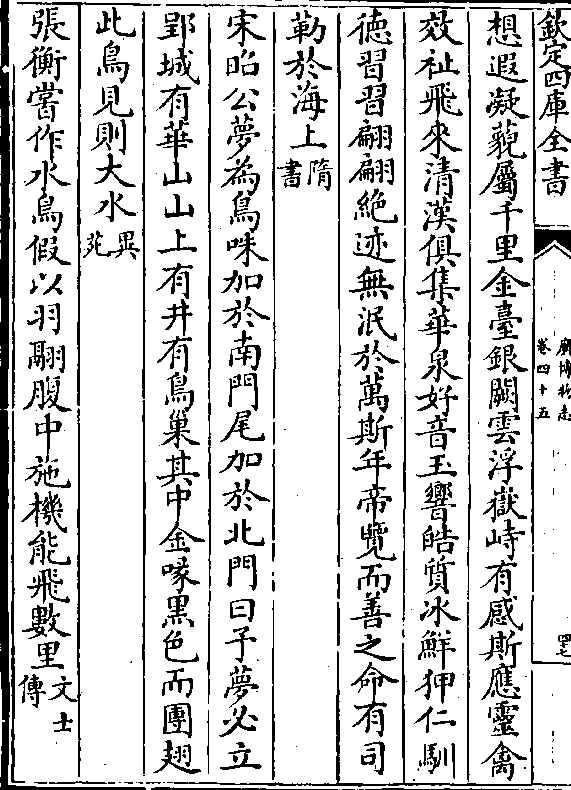 欽定四庫全書
廣博物志
卷四十五
四七
想遐凝藐屬千里金臺銀闕雲浮嶽峙有感斯應靈禽
效祉飛來清漢俱集華泉好音玉響皓質冰鮮狎仁馴
德習習翩翩絶迹無泯於萬斯年帝覽而善之命有司
勒於海上隋書
宋昭公夢為鳥咮加於南門尾加於北門曰子夢必立
郢城有華山山上有井有鳥巢其中金喙黑色而團翅
此鳥見則大水異苑
張衡嘗作水鳥假以羽翮腹中施機能飛數里文士傳